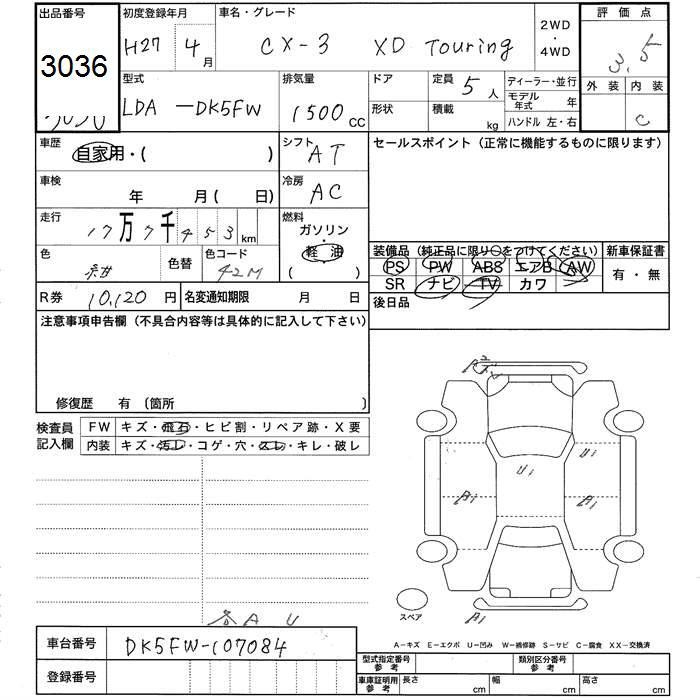 出品番号 初度登録年月 車名・グレード 2WD・4WD 評価点
3036 H27 4月 CX-3 XD Touring 3.5
型式 排気量 ドア 定員 5人 ディーラー・並行 外装 内装
LDA-DK5FW 1500cc 形状 積載 kg モデル年式 年 C
ハンドル 左・右
車歴 自家用・( ) シフト AT セールスポイント(正常に機能するものに限ります)
車検 年 月( 日) 冷房 AC
走行 17万7千453km 燃料 ガソリン・軽油 ( )
色 紺 色替 色コード 42M
装備品(純正品に限り○をつけてください) 新車保証書
PS PW ABS エアB AW 有・無
SR ナビ TV カワ
R券 10,120円 名変通知期限 月 日 後日品
注意事項申告欄(不具合内容等は具体的に記入して下さい)
修復歴 有〔箇所 〕
検査員記入欄 FW キズ・飛石・ヒビ割・リペア跡・X要
内装 キズ・汚レ・コゲ・穴・スレ・キレ・破レ
A2
U1 U1
A1 A1
スペア A1
各A U
A-キズ E-エクボ U-凹み W-補修跡 S-サビ C-腐食 XX-交換済
車台番号 DK5FW-107084
型式指定番号 参考 類別区分番号 参考
登録番号
車庫証明用 参考 長さ cm 幅 cm 高さ cm